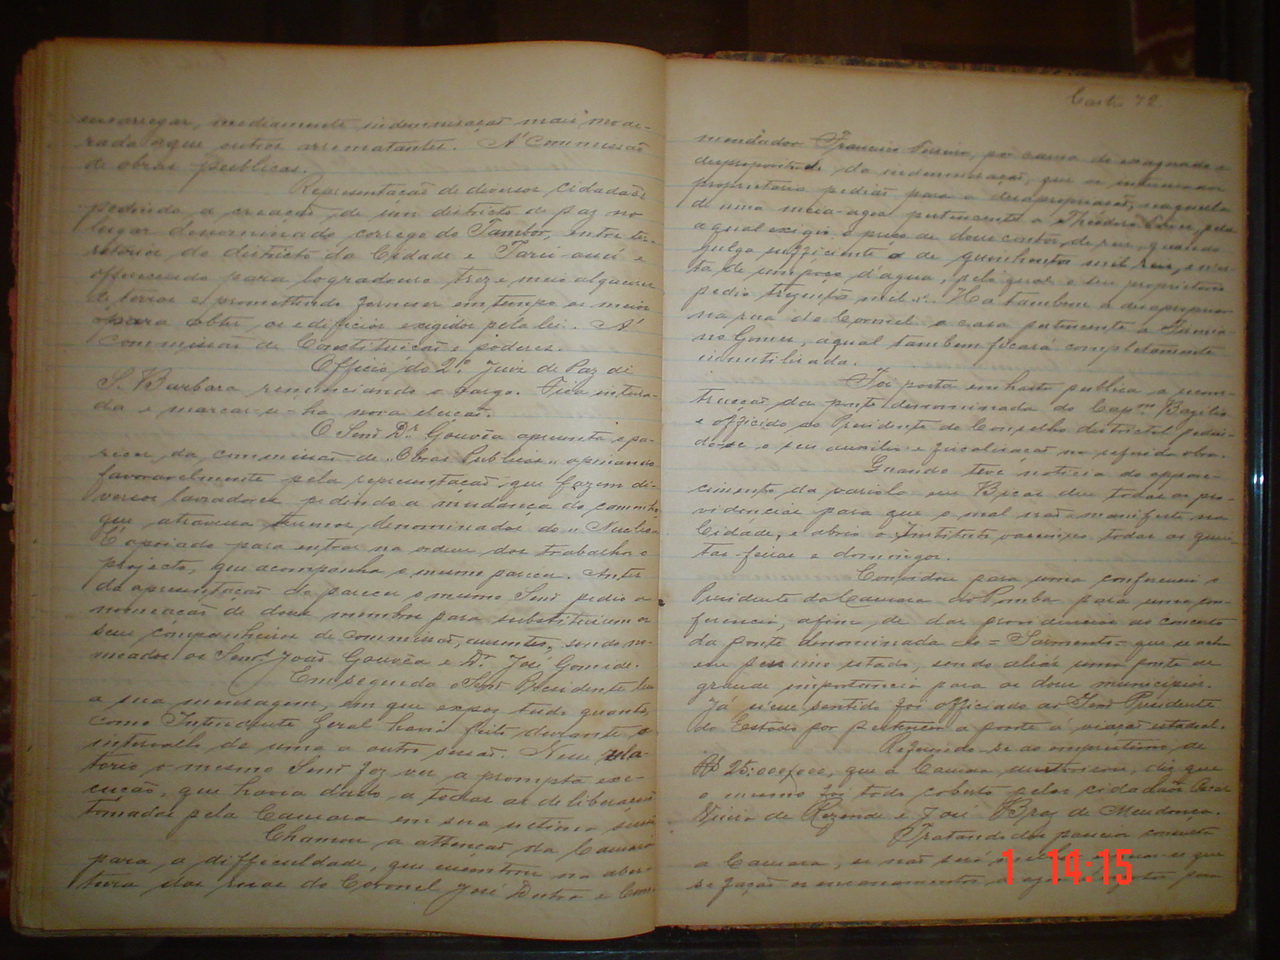 encarregar, mediamente indemnisação mais mode-
rada que outros arrematantes. A' Commissão
de obras publicas.
Representação de diversos cidadãos
pedindo a creação de um districto de paz no
lugar denominado corrego do Tambor, entre ter-
ritorio do districto da Cidade e
offerecendo para logradouro trez e meio alqueires
de terras e promettendo fornecer em tempo os meios
para obter os edificios exigidos pela lei. A'
commissão de Constituição e poderes.
Officio do 2º Juiz de Paz de
S. Barbara renunciando o cargo. Fica inteira-
da e marcar-se-ha nova eleição.
O Senr Dr Gouvêa apresenta o pa-
recer da commissão de "Obras Publicas" opinando
favoravelmente pela representação, que fazem di-
versos lavradores pedindo a mudança do caminho
que atravessa terrenos denominados do "Nucleo"
É apoiado para entrar na ordem dos trabalhos o
projecto, que acompanha o mesmo parecer. Antes
da apresentação do parecer o mesmo Senr pedio a
nomeação de dous membros para substituirem os
seus companheiros de commissão, ausentes, sendo no-
meados os Senrs João Gouvêa e Dr José Gomide.
Em seguida o Senr Presidente leu
a sua mensagem, em que expoz tudo quanto,
como Intendente Geral havia feito durante o
intervallo de uma a outra sessão. Nesse rela-
torio o mesmo Senr fez ver a prompta exe-
cução, que havia dado a todas as deliberações
tomadas pela Camara em sua ultima sessão
Chamou a attenção da Camara
para a difficuldade, que encontrou na aber-
tura das ruas do Coronel José Dutra e Com-
Castro 72
mendador Francisco, por causa do exagerado e
desproposito da indemnisação, que os
proprietarios pedião para a desapropriação, naquella
de uma meia-agoa pertencente a Theodoro, pela
a qual exigio o preço de doze contos de reis, quando
julga sufficiente o de quinhentos mil reis, e n'es-
ta de um poço d'agua, pelo qual o seu proprietario
pedio trezentos mil rs. Ha tambem a desapropriar
na rua do Coronel a casa pertencente a
no Gomes, a qual tambem ficará completamente
inutilisada.
Foi posta em hasta publica a recons-
trucção da ponte denominada do Capm Bazilio
e officido ao Presidente do Conselho districtal pedin-
do-se o seu auxilio e fiscalisação na referida obra.
Quando teve noticia do appare-
cimento da variola em Bicas deu todas as pro-
videncias para que o mal não se manifeste na
Cidade, e abrio o Instituto vaccinico todas as quin-
tas-feiras e domingos.
Convidou para uma conferencia o
Presidente da Camara do Pomba para uma con-
ferencia, afim de dar providencias ao concerto
da ponte denominada do = Sarmento = que se acha
em pessimo estado, sendo aliás uma ponte de
grande importancia para os dous municipios.
Já n'esse sentido foi officiado ao Senr Presidente
do Estado por pertencer a ponte á viação estadoal.
Referindo-se ao emprestimo de
Rs 25:000$000, que a Camara, diz que
o mesmo foi todo coberto pelos cidadãos Cesar
Vieira de Rezende e José Braz de Mendonça.
Tratando das pennas consulta
a Camara, se não será
se fação os encanamentos para
1 14:15